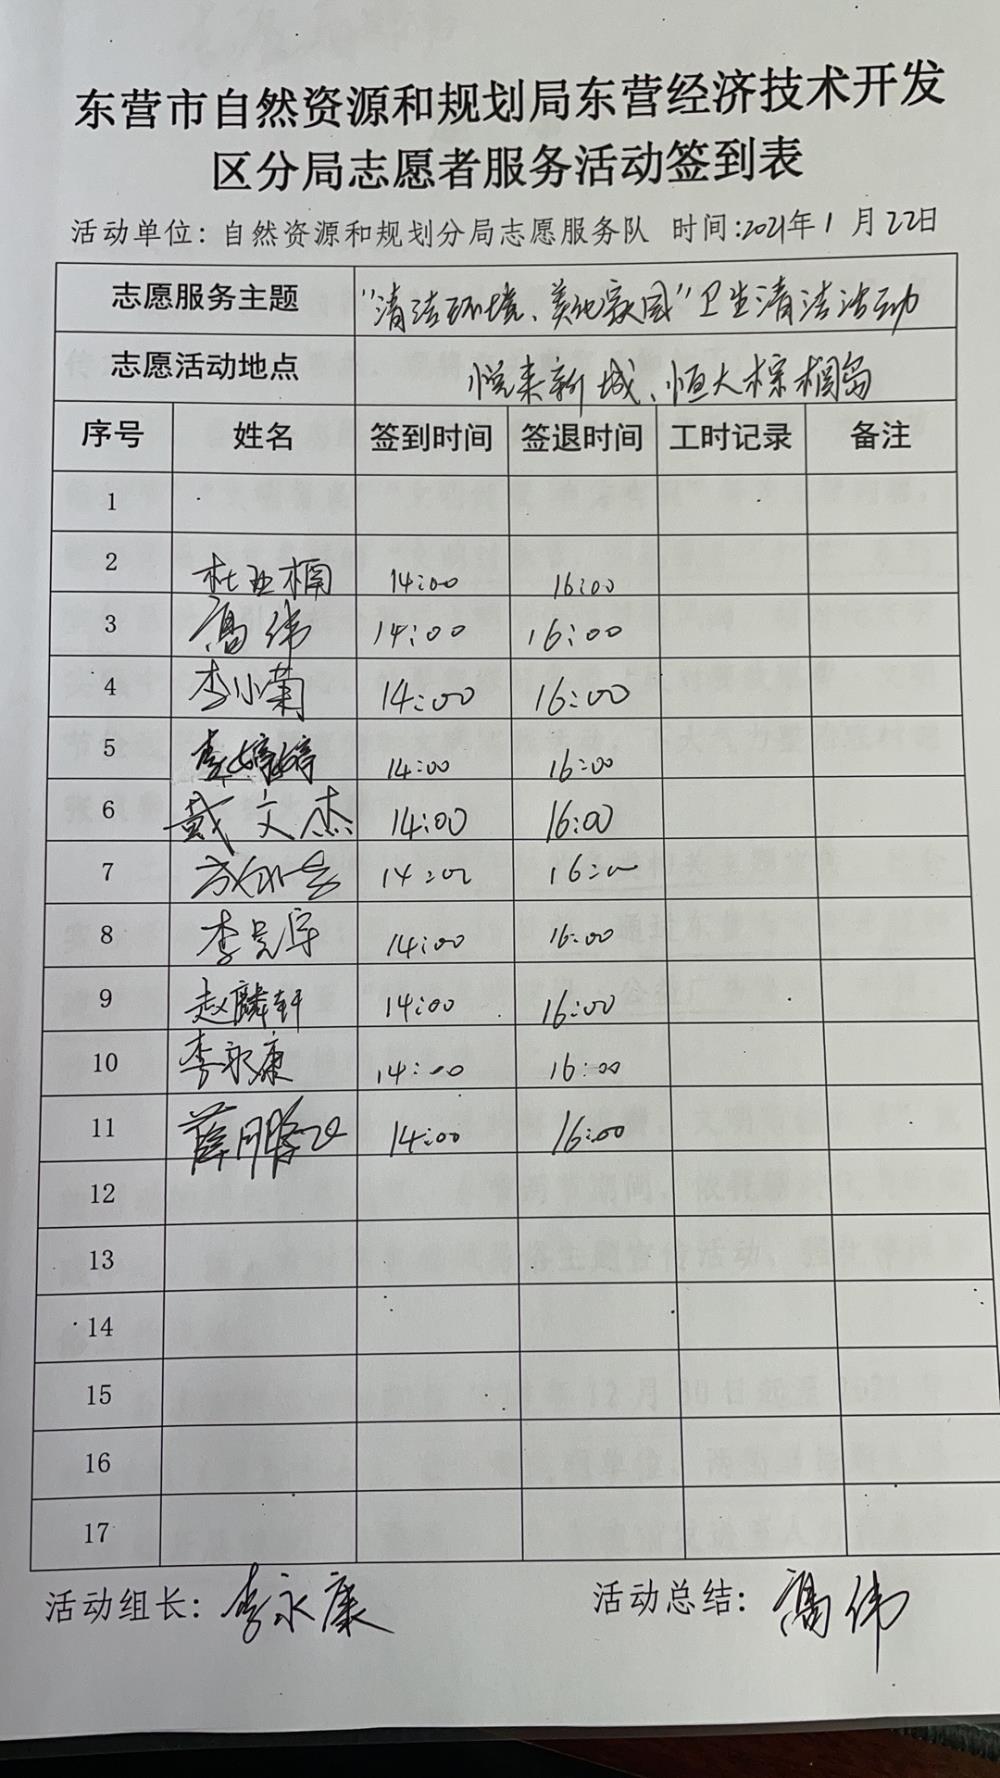 东营市自然资源和规划局东营经济技术开发
区分局志愿者服务活动签到表
活动单位：自然资源和规划分局志愿服务队 时间：2021年1月22日
志愿服务主题 “清洁环境、美化家园”卫生清洁活动
志愿活动地点 悦来新城、恒大棕榈岛
序号 姓名 签到时间 签退时间 工时记录 备注
1
2 杜亚楠 14:00 16:00
3 高伟 14:00 16:00
4 李小菊 14:00 16:00
5 李婷婷 14:00 16:00
6 戴文杰 14:00 16:00
7 14:00 16:00
8 14:00 16:00
9 赵麟轩 14:00 16:00
10 李永康 14:00 16:00
11 薛 14:00 16:00
12
13
14
15
16
17
活动组长：李永康 活动总结：高伟